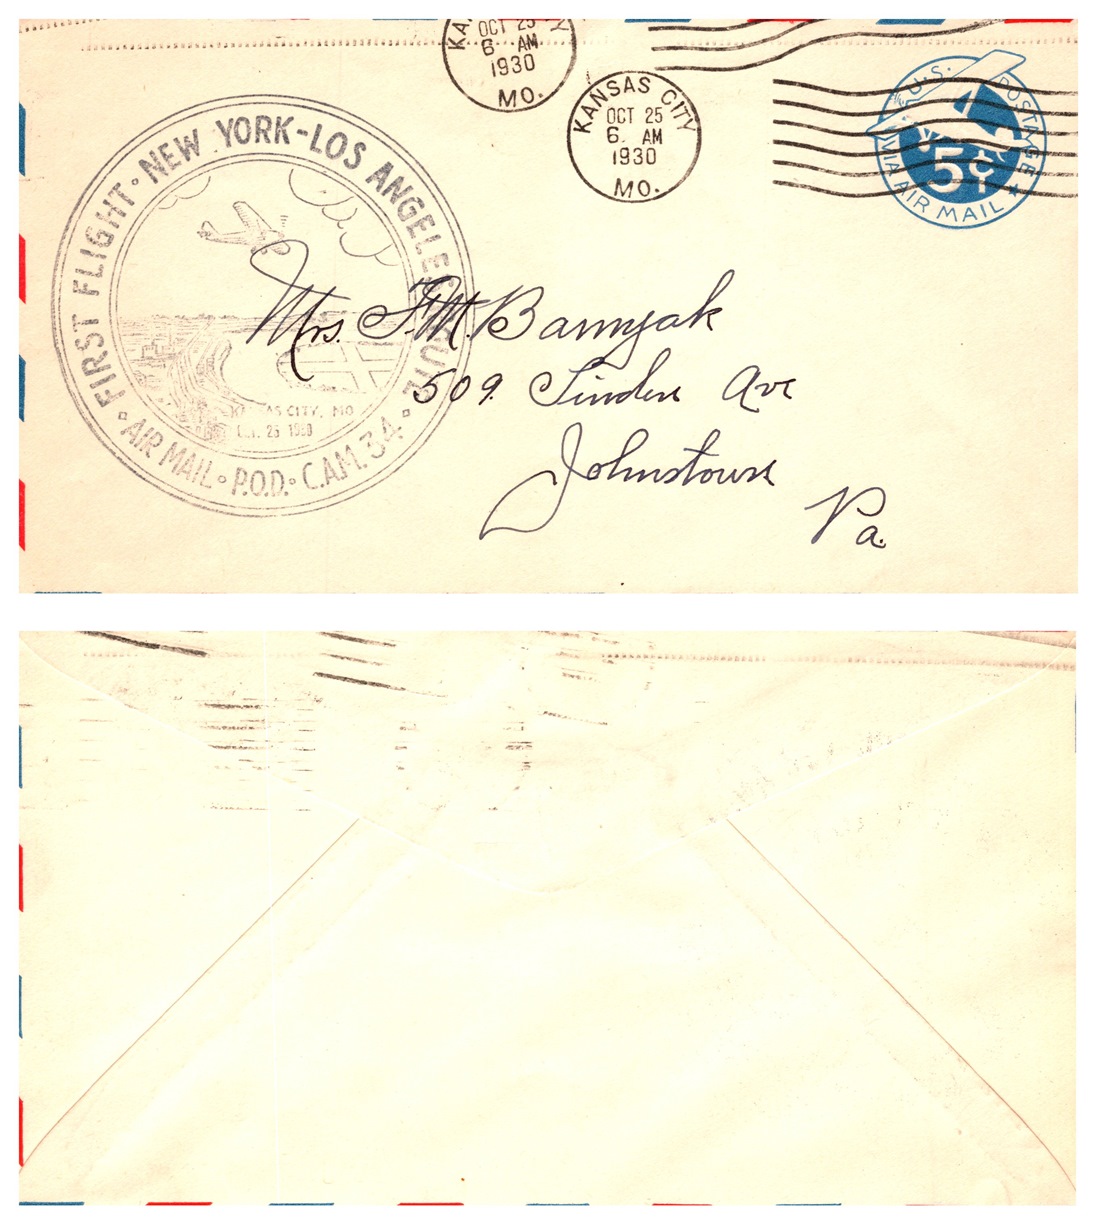 KA
OCT 25
6 AM
1930
MO.
KANSAS CITY
OCT 25
6 AM
1930
MO.
U.S. POSTAGE
5¢
VIA AIR MAIL
FIRST FLIGHT • NEW YORK-LOS ANGELES ROUTE
KANSAS CITY, MO
OCT. 25 1930
AIR MAIL • P.O.D. • C.A.M. 34
Mrs. F.M. Barnyak
509 Linden Ave
Johnstown
Pa.